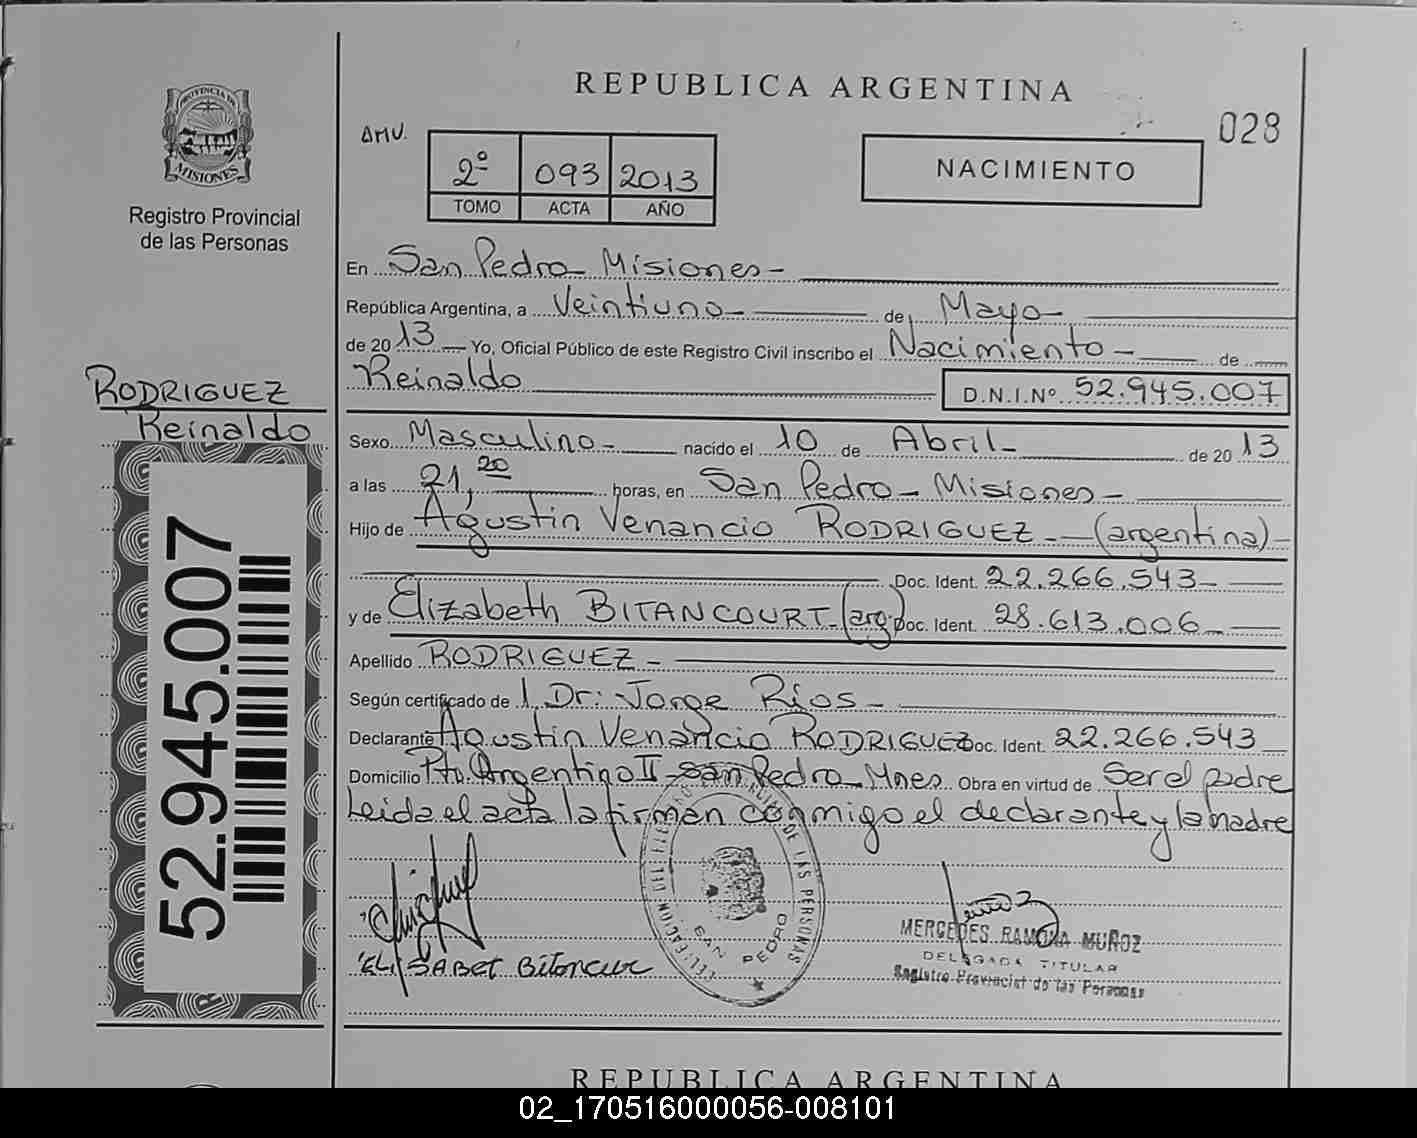 REPUBLICA ARGENTINA
028
PROVINCIA DE
MISIONES
Registro Provincial
de las Personas
2º 093 2013
TOMO ACTA AÑO
NACIMIENTO
En San Pedro Misiones
República Argentina, a Veintiuno de Mayo
de 20 13 Yo, Oficial Público de este Registro Civil inscribo el Nacimiento de
Reinaldo D.N.I.Nº 52.945.007
RODRIGUEZ
Reinaldo
52.945.007
Sexo Masculino nacido el 10 de Abril de 20 13
a las 21,20 horas, en San Pedro - Misiones
Hijo de Agustin Venancio RODRIGUEZ (argentina)
Doc. Ident. 22.266.543
y de Elizabeth BITANCOURT (arg) Doc. Ident. 28.613.006
Apellido RODRIGUEZ
Según certificado de Dr: Jorge Rios
Declarante Agustin Venancio RODRIGUEZ Doc. Ident. 22.266.543
Domicilio Pto. Argentino II - San Pedro - Mnes Obra en virtud de Ser el padre
Leida el acta la firman conmigo el declarante y la madre
SAN PEDRO
MERCEDES RAMONA MUÑOZ
DELEGADA TITULAR
Registro Provincial de las Personas
REPUBLICA ARGENTINA
02_170516000056-008101